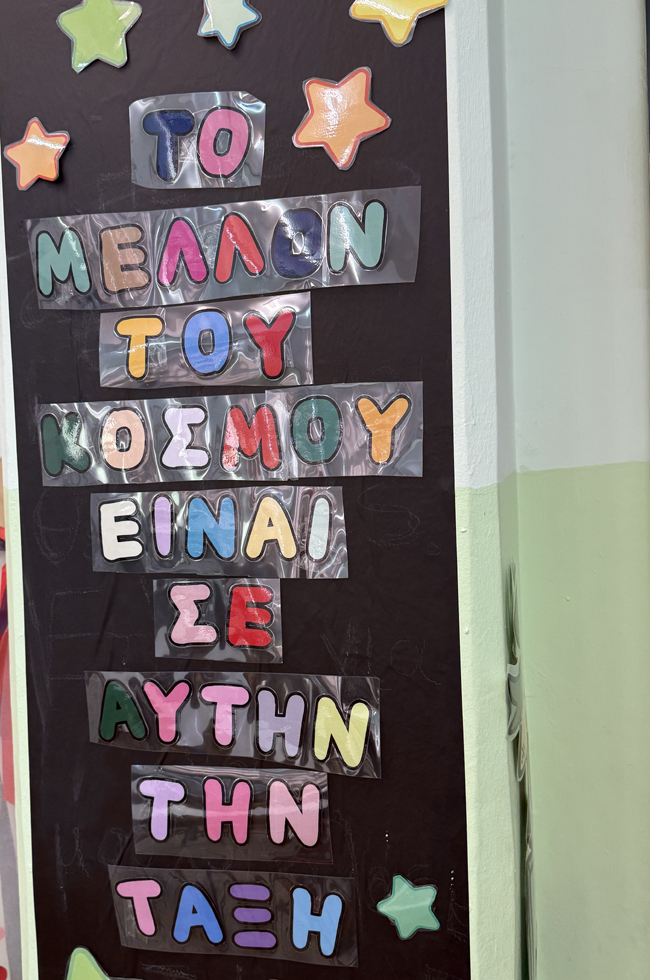 ΤΟ
ΜΕΛΛΟΝ
ΤΟΥ
ΚΟΣΜΟΥ
ΕΙΝΑΙ
ΣΕ
ΑΥΤΗΝ
ΤΗΝ
ΤΑΞΗ